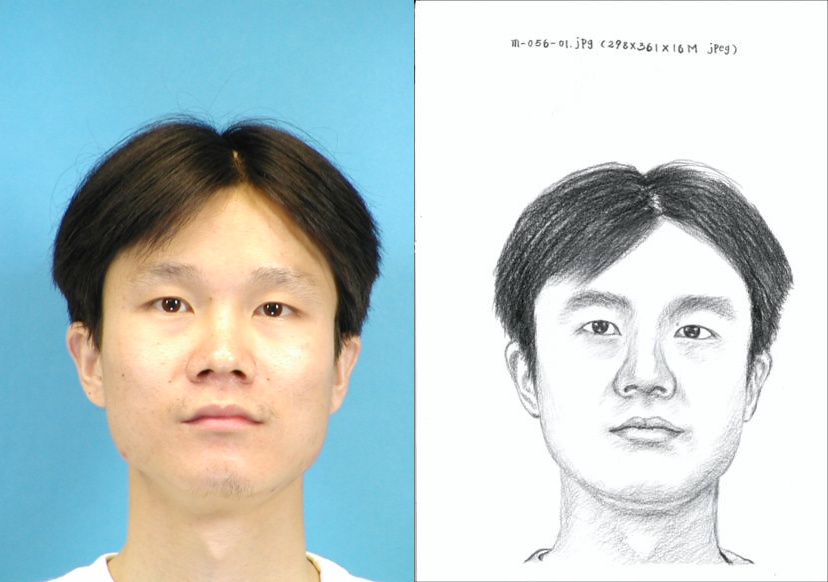 m-056-01.jpg (298x361x16M jpeg)